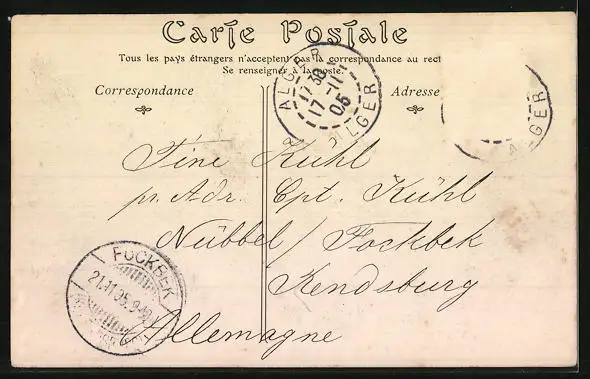 Carte Postale
Tous les pays étrangers n'acceptent pas la correspondance au rect
Se renseigner à la poste.
Correspondance
Adresse
ALGER
17 30
17-11
05
ALGER
ALGER
Tine Kühl
pr. Adr. Cpt. Kühl
Nübbel / Fockbek
Rendsburg
Allemagne
FOCKBEK
21.11.05.